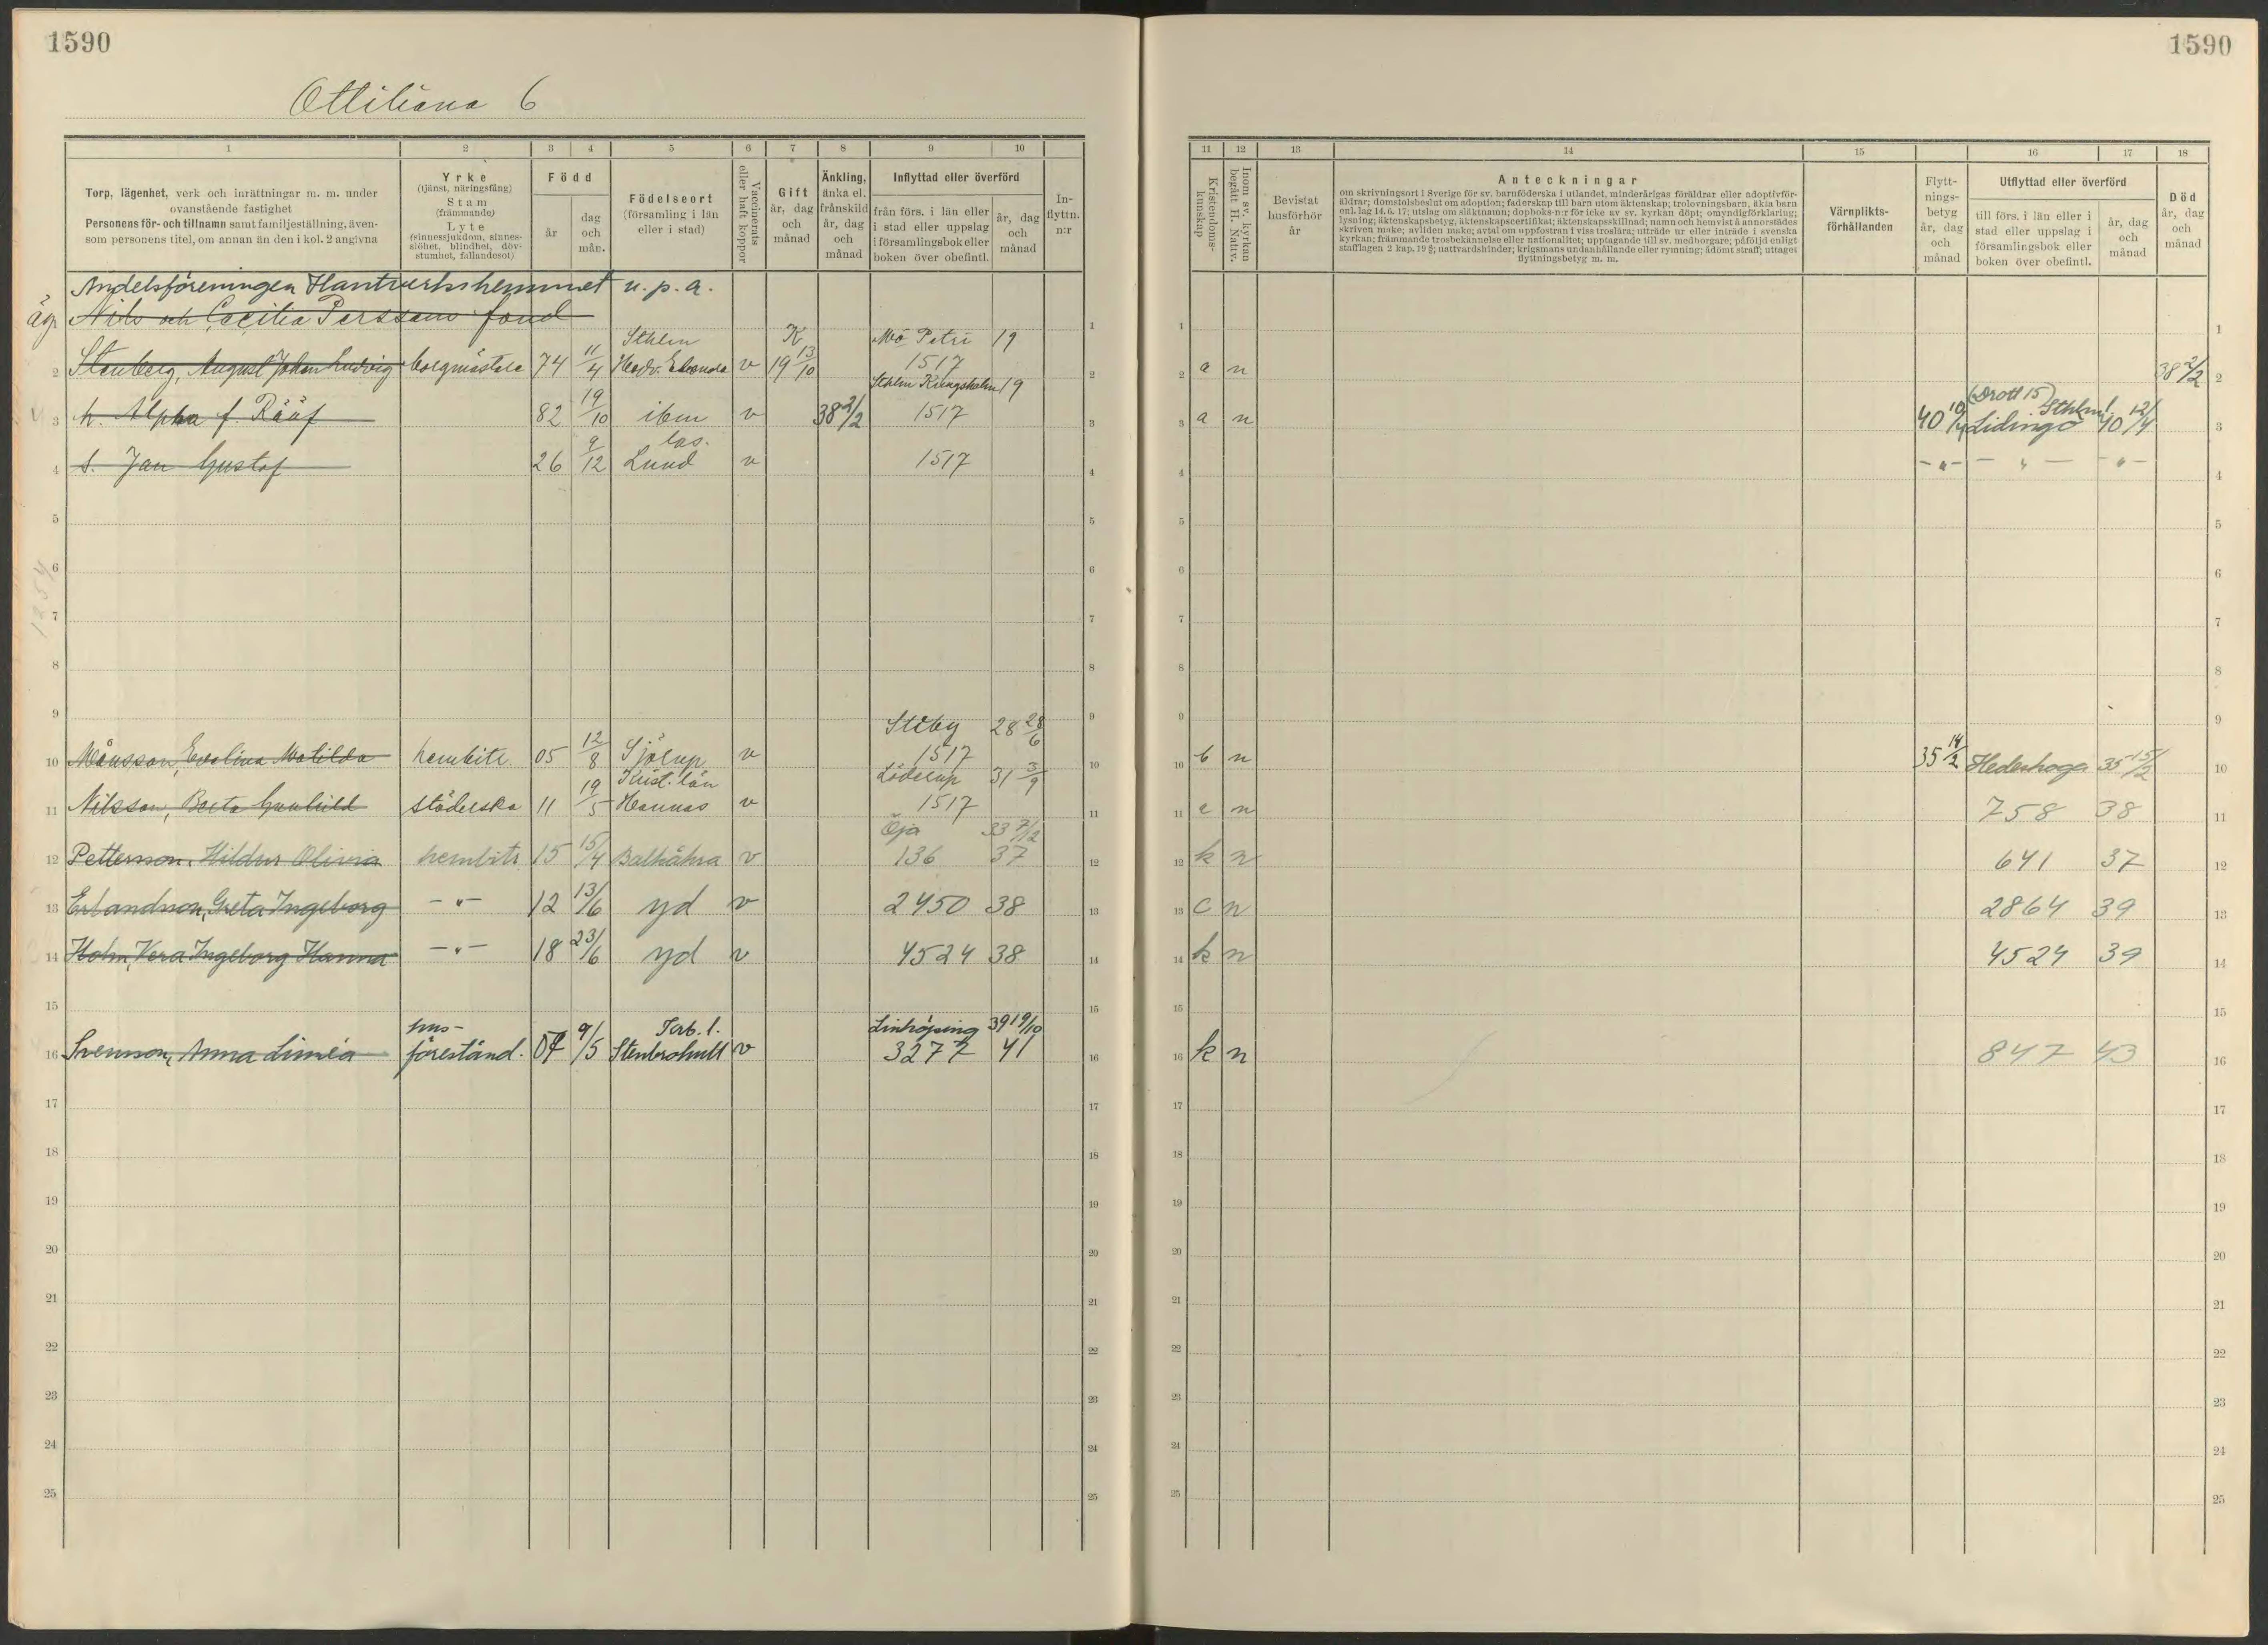 1590
1590
Ottiliana 6
1 2 3 4 5 6 7 8 9 10
Torp, lägenhet, verk och inrättningar m. m. under
ovanstående fastighet
Personens för- och tillnamn samt familjeställning, även-
som personens titel, om annan än den i kol. 2 angivna
Yrke
(tjänst, näringsfång)
Stam
(främmande)
Lyte
(sinnessjukdom, sinnes-
slöhet, blindhet, döv-
stumhet, fallandesot)
Född
år
dag
och
mån.
Födelseort
(församling i län
eller i stad)
Vaccinerats
eller haft koppor
Gift
år, dag
och
månad
Änkling,
änka el.
frånskild
år, dag
och
månad
Inflyttad eller överförd
från förs. i län eller
i stad eller uppslag
i församlingsbok eller
boken över obefintl.
år, dag
och
månad
In-
flyttn.
n:r
11 12 13 14 15 16 17 18
Kristendoms-
kunskap
Inom sv. kyrkan
begått H. Nattv.
Bevistat
husförhör
år
Anteckningar
om skrivningsort i Sverige för sv. barnföderska i utlandet, minderårigas föräldrar eller adoptivför-
äldrar; domstolsbeslut om adoption; faderskap till barn utom äktenskap; trolovningsbarn, äkta barn
enl. lag 14. 6. 17; utslag om släktnamn; dopboks-n:r för icke av sv. kyrkan döpt; omyndigförklaring;
lysning; äktenskapsbetyg, äktenskapscertifikat; äktenskapsskillnad; namn och hemvist å annorstädes
skriven make; avliden make; avtal om uppfostran i viss troslära; utträde ur eller inträde i svenska
kyrkan; främmande trosbekännelse eller nationalitet; upptagande till sv. medborgare; påföljd enligt
strafflagen 2 kap. 19 §; nattvardshinder; krigsmans undanhållande eller rymning; ådömt straff; uttaget
flyttningsbetyg m. m.
Värnplikts-
förhållanden
Flytt-
nings-
betyg
år, dag
och
månad
Utflyttad eller överförd
till förs. i län eller i
stad eller uppslag i
församlingsbok eller
boken över obefintl.
år, dag
och
månad
Död
år, dag
och
månad
Andelsföreningen Hantverkshemmet u. p. a.
äg Nils och Cecilia Perssons fond
1 1 1 1
Sthlm K Mö Petri 19
2 Stenberg, August Johan Ludvig borgmästare 74 11/4 Hedv. Eleonora v 19 13/10 1517 2 2 a n 38 2/2 2
Sthlm Kungsholm 19
(Drott 15)
Sthlm l.
3 h. Alpha f. Rääf 82 19/10 ibm v 38 2/2 1517 3 3 a n 40 10/4 Lidingö 40 12/4 3
las.
4 s. Jan Gustaf 26 9/12 Lund v 1517 4 4 -"- -"- -"- 4
5 5 5 5
6 6 6 6
1254
7 7 7 7
8 8 8 8
9 9 9 9
Stiby 28 28/6
10 Månsson, Evelina Matilda hembitr. 05 12/8 Sjörup v 1517 10 10 b n 35 14/2 Hedeskoga 35 15/2 10
Krist. län Löderup 31 3/9
11 Nilsson, Berta Gunhild städerska 11 19/5 Hannas v 1517 11 11 a n 758 38 11
Öja 33 7/12
12 Pettersson, Hildur Olivia hembitr 15 15/4 Balkåkra v 136 37 12 12 k n 641 37 12
13 Erlandsson, Greta Ingeborg -"- 12 13/6 yd v 2450 38 13 13 c n 2864 39 13
14 Holm, Vera Ingeborg Hanna -"- 18 23/6 yd v 4524 38 14 14 k n 4524 39 14
15 15 15 15
hus- Linköping 39 19/10
16 Svensson, Anna Linnéa förestånd. 07 9/5 Stenbrohult v 3277 41 16 16 k n 847 43 16
17 17 17 17
18 18 18 18
19 19 19 19
20 20 20 20
21 21 21 21
22 22 22 22
23 23 23 23
24 24 24 24
25 25 25 25